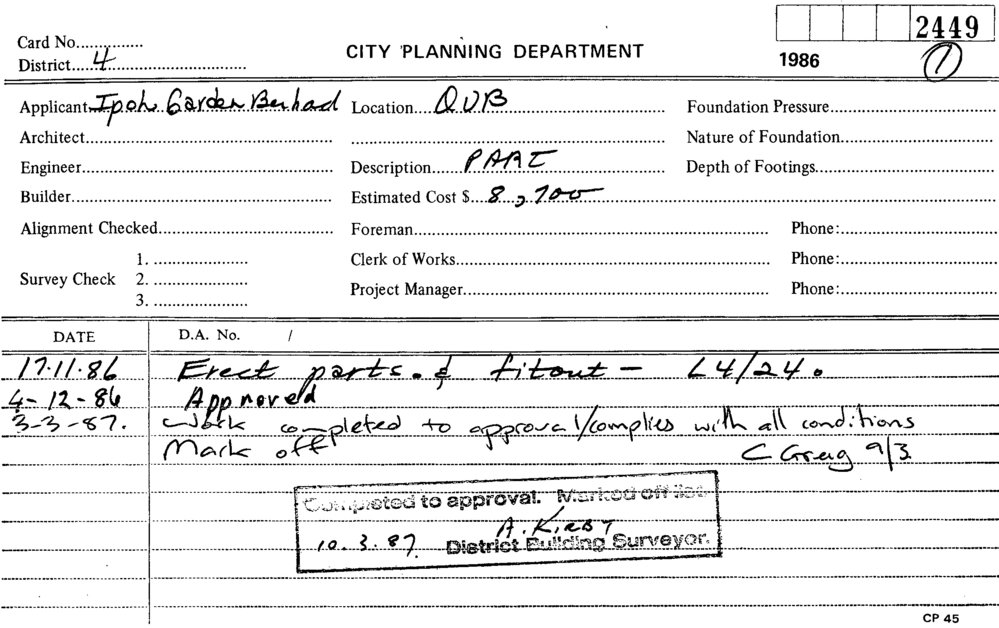 2449
Card No...............
District....4...............
CITY PLANNING DEPARTMENT
1986
1
Applicant Ipoh Garden Berhad Location QVB Foundation Pressure
Architect Nature of Foundation
Engineer Description PART Depth of Footings
Builder Estimated Cost $ 8,700
Alignment Checked Foreman Phone:
1. Clerk of Works Phone:
Survey Check 2.
3. Project Manager Phone:
DATE D.A. No. /
17.11.86 Erect parts. & fitout - L4/24.
4-12-86 Approved
3-3-87. Work completed to approval/complies with all conditions
Mark off C Greig 9/3
Completed to approval. Marked off list
A. KIRBY
10.3.87. District Building Surveyor.
CP 45